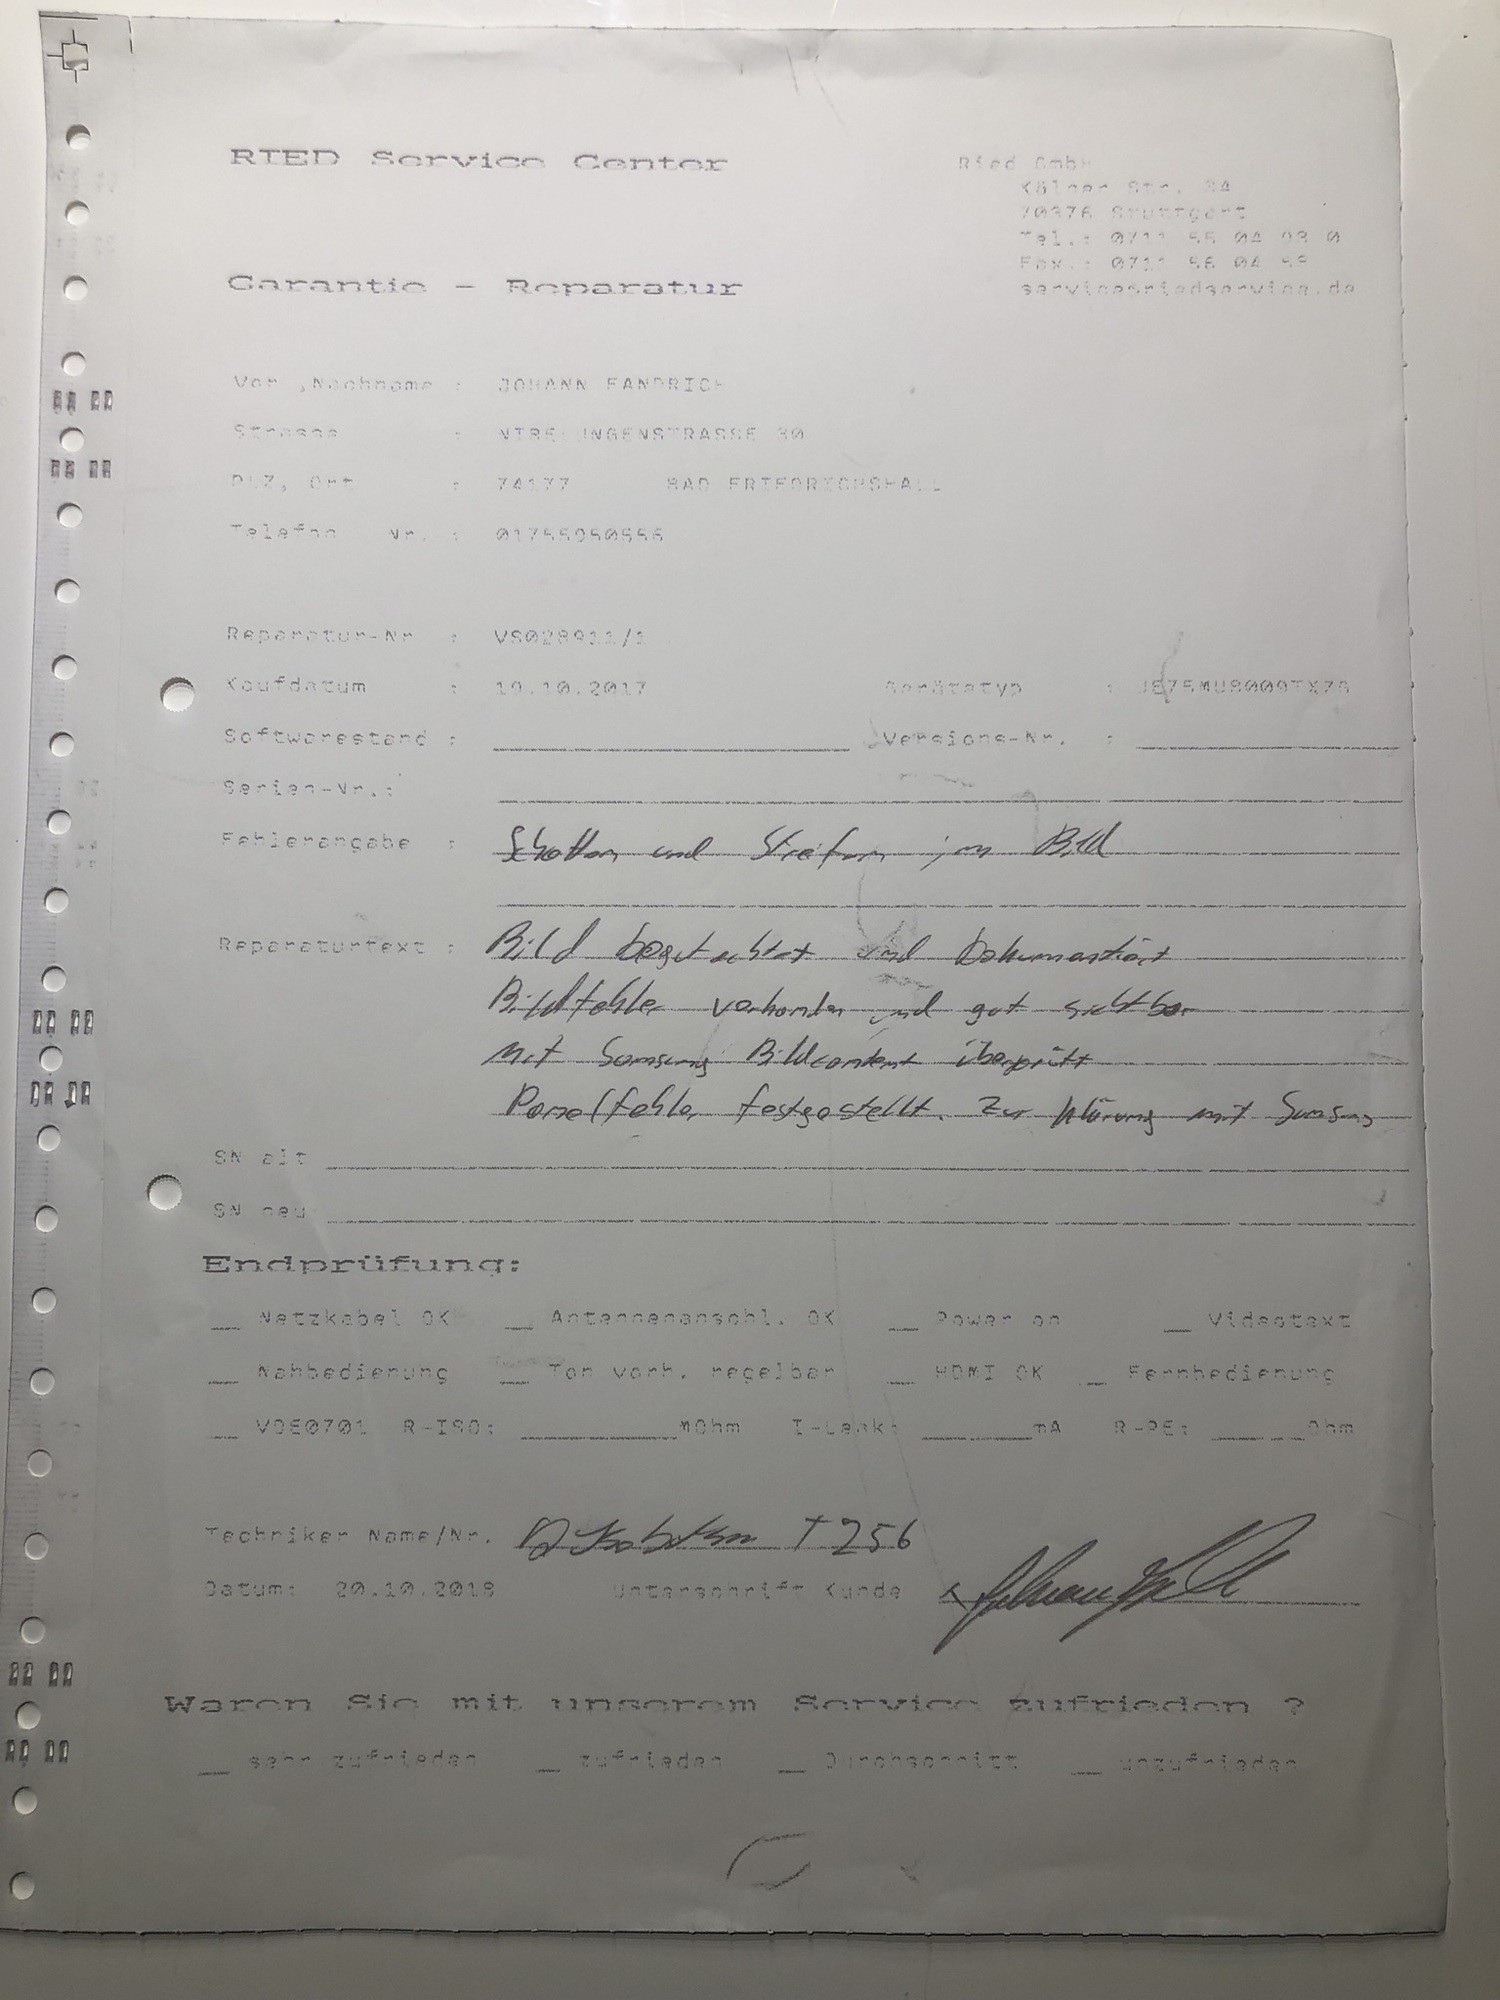 RIED Service Center
Ried GmbH
Kölner Str. 34
70376 Stuttgart
Tel.: 0711 55 04 93 0
Fax.: 0711 56 04 59
service@riedservice.de
Garantie - Reparatur
Vor ,Nachname : JOHANN FANDRICH
Strasse : NIBELUNGENSTRASSE 30
PLZ, Ort : 74177 BAD FRIEDRICHSHALL
Telefon Nr. : 01755050556
Reparatur-Nr : VS028911/1
Kaufdatum : 19.10.2017 Gerätetyp : UE75MU8009TXZG
Softwarestand : Versions-Nr. :
Serien-Nr.:
Fehlerangabe : Schatten und Streifen im Bild
Reparaturtext : Bild begutachtet und Dokumentiert
Bildfehler vorhanden und gut sichtbar
mit Samsung Bildcontent überprüft
Panelfehler festgestellt. Zur Klärung mit Samsung
SN alt
SN neu
Endprüfung:
__ Netzkabel OK __ Antennenanschl. OK __ Power on __ Videotext
__ Nahbedienung __ Ton vorh. regelbar __ HDMI OK __ Fernbedienung
__ VDE0701 R-ISO: MOhm I-Leak: mA R-PE: Ohm
Techniker Name/Nr. T256
Datum: 20.10.2018 Unterschrift Kunde x
Waren Sie mit unserem Service zufrieden ?
__ sehr zufrieden __ zufrieden __ Durchschnitt __ unzufrieden